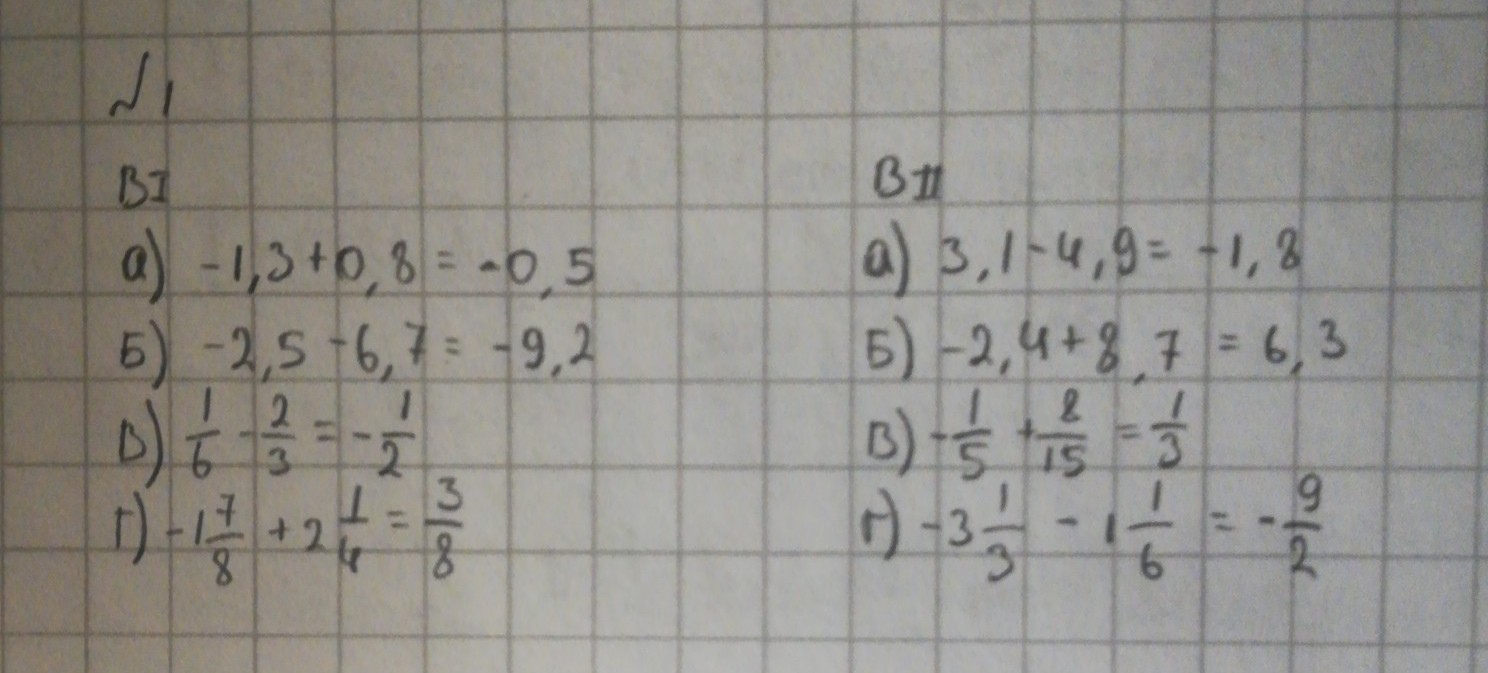 №1
В I
а) -1,3+0,8 = -0,5
Б) -2,5 -6,7 = -9,2
В) 1/6 - 2/3 = - 1/2
Г) -1 7/8 + 2 1/4 = 3/8
В II
а) 3,1-4,9 = -1,8
Б) -2,4+8,7 = 6,3
В) - 1/5 + 8/15 = 1/3
Г) -3 1/3 - 1 1/6 = - 9/2